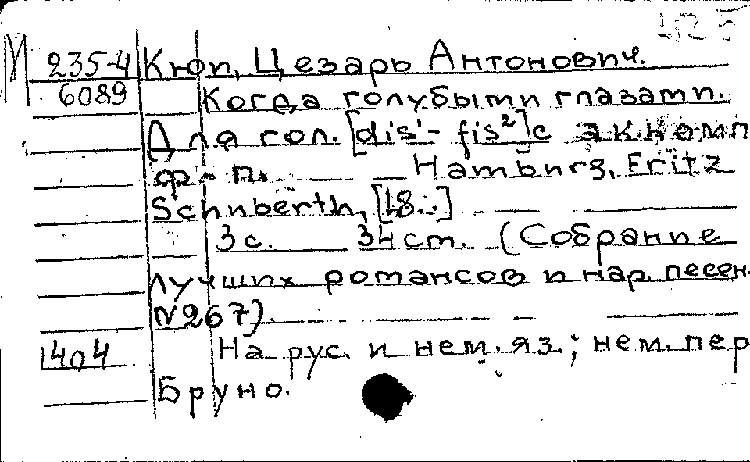 М 235-4 Кюи, Цезарь Антонович.
6089 Когда голубыми глазами.
Для гол. [dis¹- fis²] с аккомп
ф-п. Hamburg, Fritz
Schuberth, [18..]
3 с. 34 ст. (Собрание
лучших романсов и нар. песен.
№267).
1404 На рус. и нем. яз.; нем. пер
Бруно.